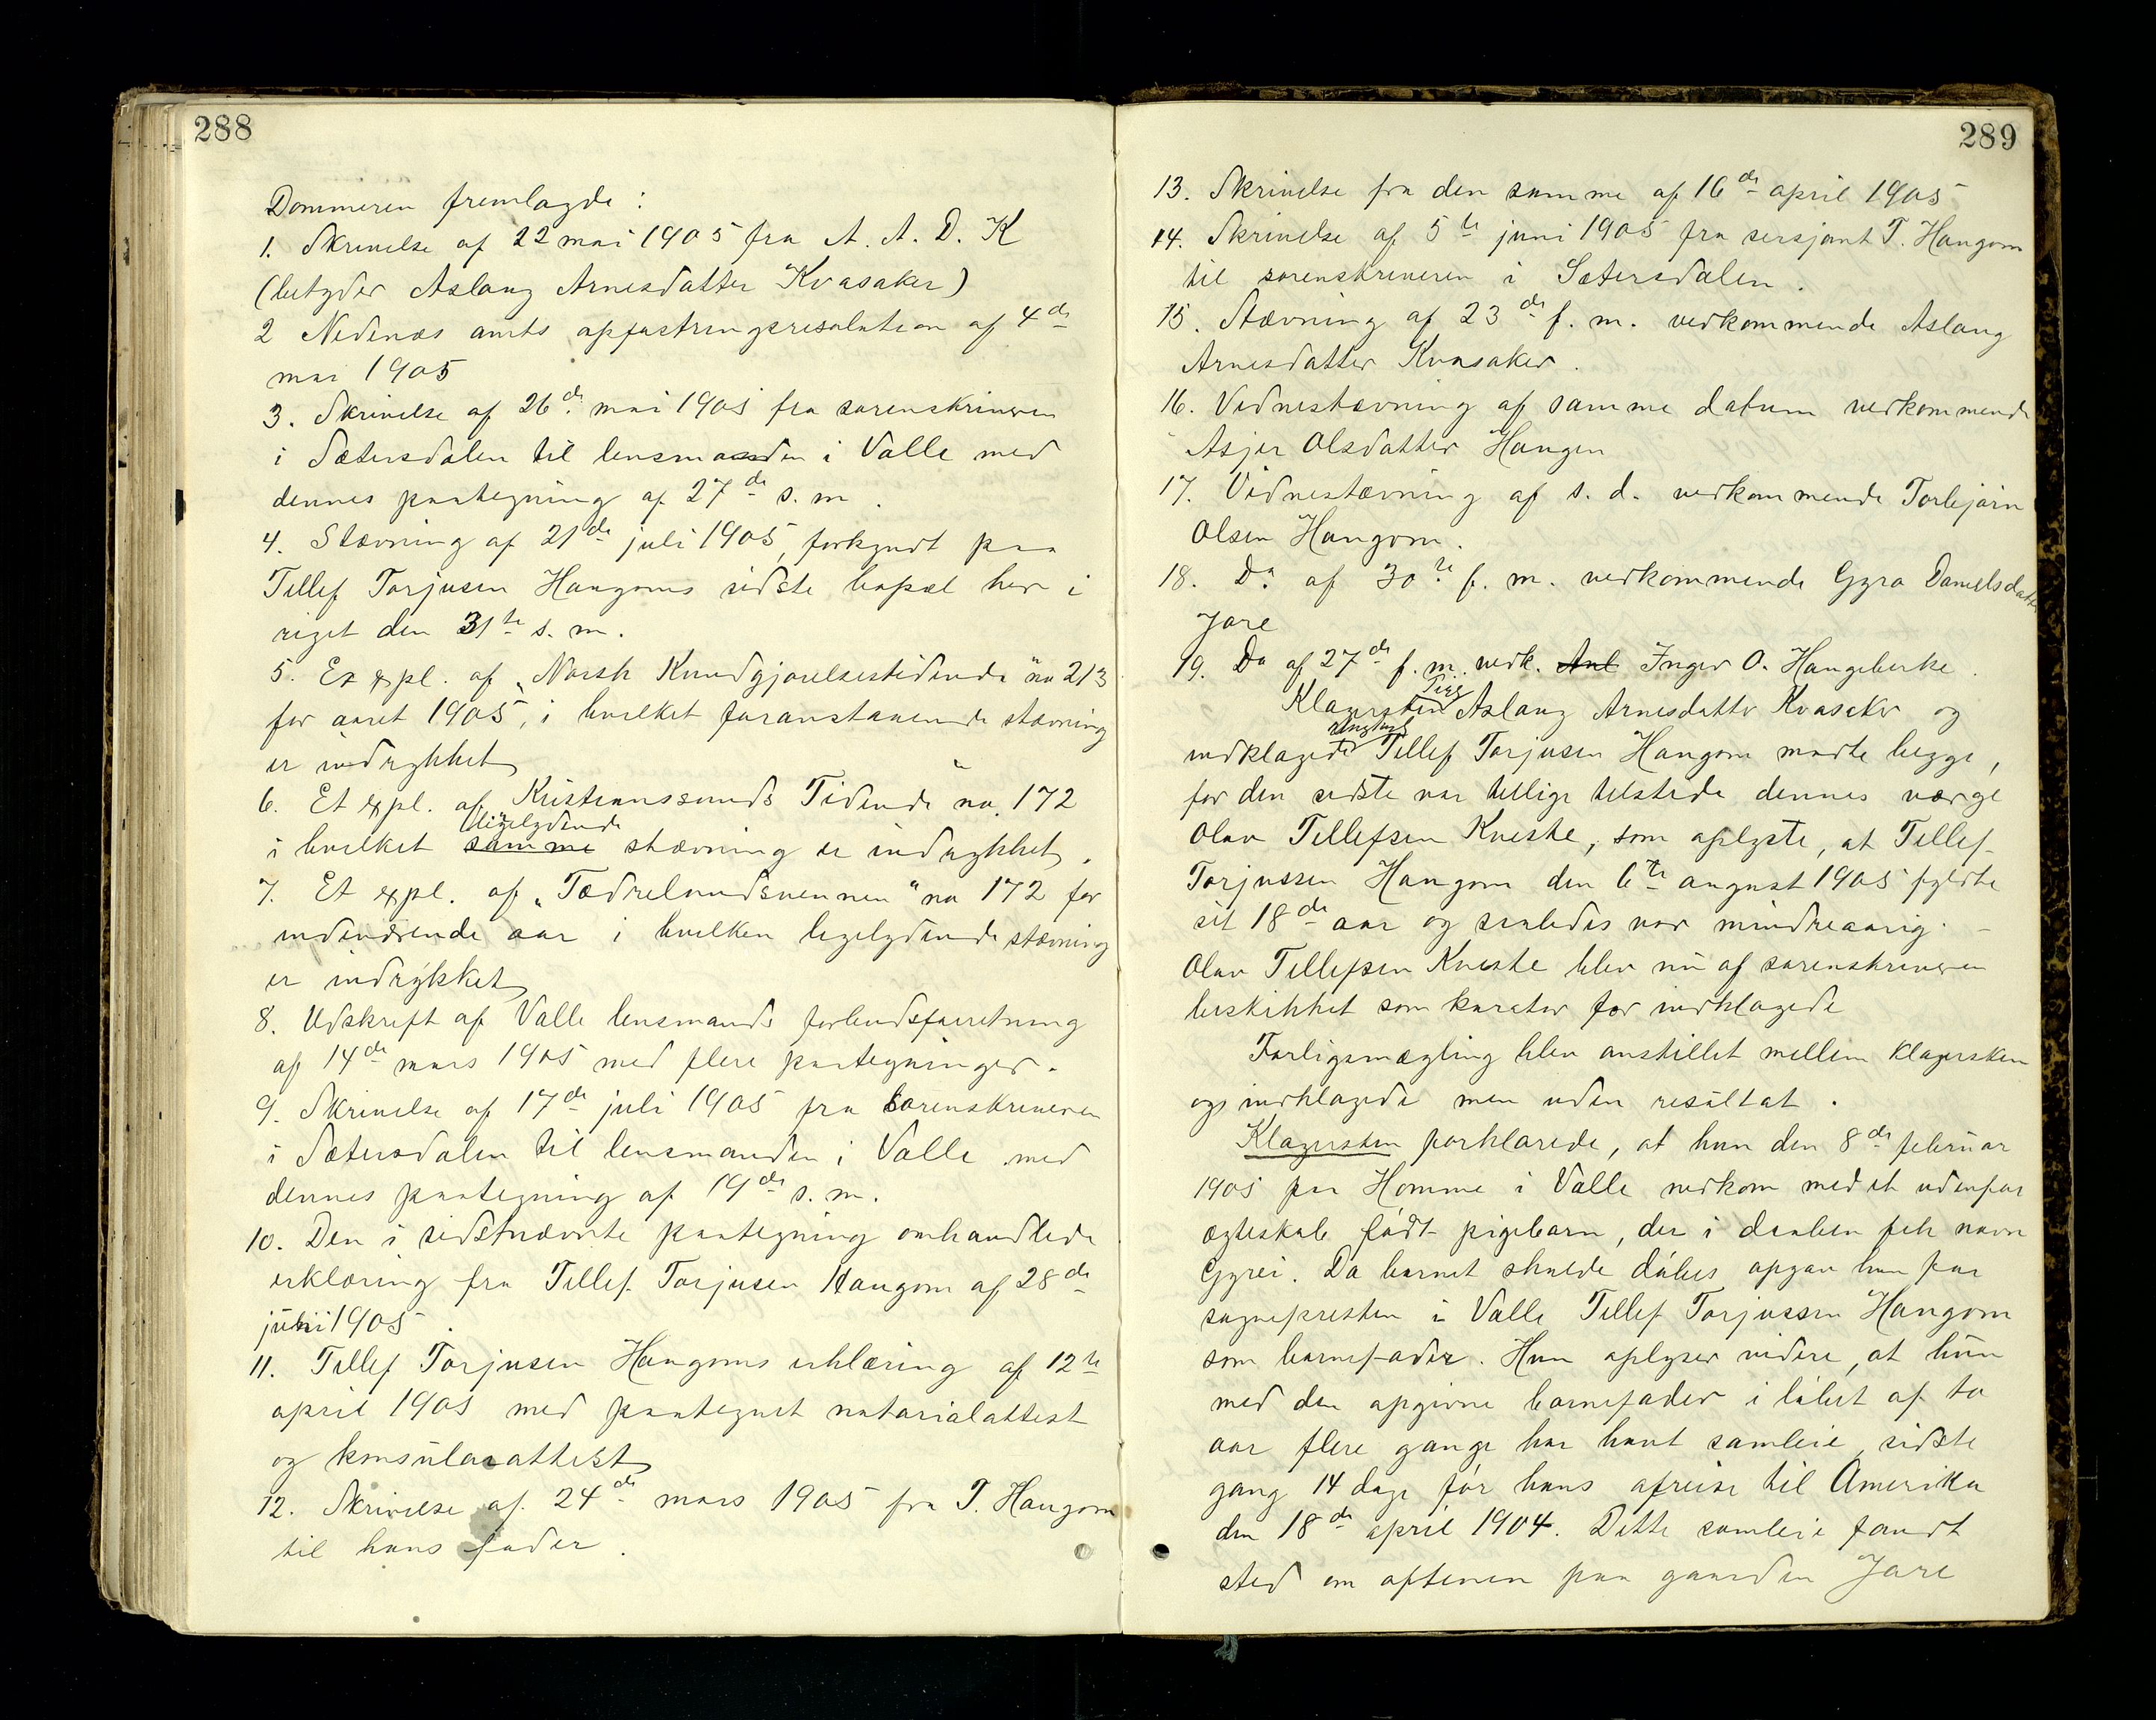 288
Dommeren fremlagde:
1. Skrivelse af 22 mai 1905 fra A. A. D. K
(betyder Aslaug Arnesdatter Kvasaker)
2 Nedenæs amts opfostringsresolution af 4de
mai 1905
3. Skrivelse af 26de mai 1905 fra sorenskriveren
i Sætersdalen til lensmanden i Valle med
dennes paategning af 27de s. m.
4. Stævning af 21de juli 1905, forkyndt paa
Tellef Torjusen Haugoms sidste bopæl her i
riget den 31te s. m.
5. Et expl. af „Norsk Kundgjørelsestidende" no 213
for aaret 1905, i hvilket foranstaaende stævning
er indrykket
6. Et expl. af „Kristianssands Tidende" no. 172
ligelydende
i hvilket samme stævning er indrykket.
7. Et expl. af „Fædrelandsvennen" no 172 for
indeværende aar i hvilken ligelydende stævning
er indrykket
8. Udskrift af Valle lensmands forbudsforretning
af 14de mars 1905 med flere paategninger.
9. Skrivelse af 17de juli 1905 fra sorenskriveren
i Sætersdalen til lensmanden i Valle med
dennes paategning af 19de s. m.
10. Den i sidstnævnte paategning omhandlede
erklæring fra Tellef Torjusen Haugom af 28de
juni 1905.
11. Tellef Torjusen Haugoms erklæring af 12te
april 1905 med paategnet notarialattest
og konsularattest
12. Skrivelse af 24de mars 1905 fra T. Haugom
til hans fader.
289
13. Skrivelse fra den samme af 16de april 1905
14. Skrivelse af 5te juni 1905 fra sersjant T. Haugom
til sorenskriveren i Sætersdalen.
15. Stævning af 23de f. m. vedkommende Aslaug
Arnesdatter Kvasaker.
16. Vidnestævning af samme datum vedkommende
Asjer Olsdatter Haugen
17. Vidnestævning af s. d. vedkommende Torbjørn
Olsen Haugom.
18. Do af 30te f. m. vedkommende Gyro Danielsdatter
Jore
19. Do af 27de f. m. vedk. Anl Inger O. Haugeberke.
Pige
Klagersken Aslaug Arnesdatter Kvasaker og
Ungkarl
indklagede Tellef Torjusen Haugom mødte begge,
for den sidste var tillige tilstede dennes værge
Olav Tellefsen Kveste, som oplyste, at Tellef
Torjussen Haugom den 6te august 1905 fyldte
sit 18de aar og saaledes var mindreaarig.
Olav Tellefsen Kveste blev nu af sorenskriveren
beskikket som kurator for indklagede
Forligsmægling blev anstillet mellem klagersken
og indklagede men uden resultat.
Klagersken forklarede, at hun den 8de februar
1905 paa Homme i Valle nedkom med et udenfor
ægteskab født pigebarn, der i daaben fik navn
Gyrei. Da barnet skulde døbes opgav hun for
sognepresten i Valle Tellef Torjussen Haugom
som barnefader. Hun oplyser videre, at hun
med den opgivne barnefader i løbet af to
aar flere gange har havt samleie, sidste
gang 14 dage før hans afreise til Amerika
den 18de april 1904. Dette samleie fandt
sted om aftenen paa gaarden Jore